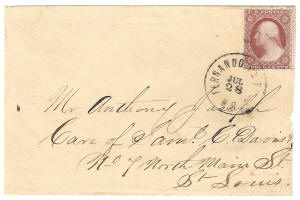 FERNANDO
JUL
28
Mr Anthony
Care of Saml. C. Davis &
No 7 North Main St.
St Louis.